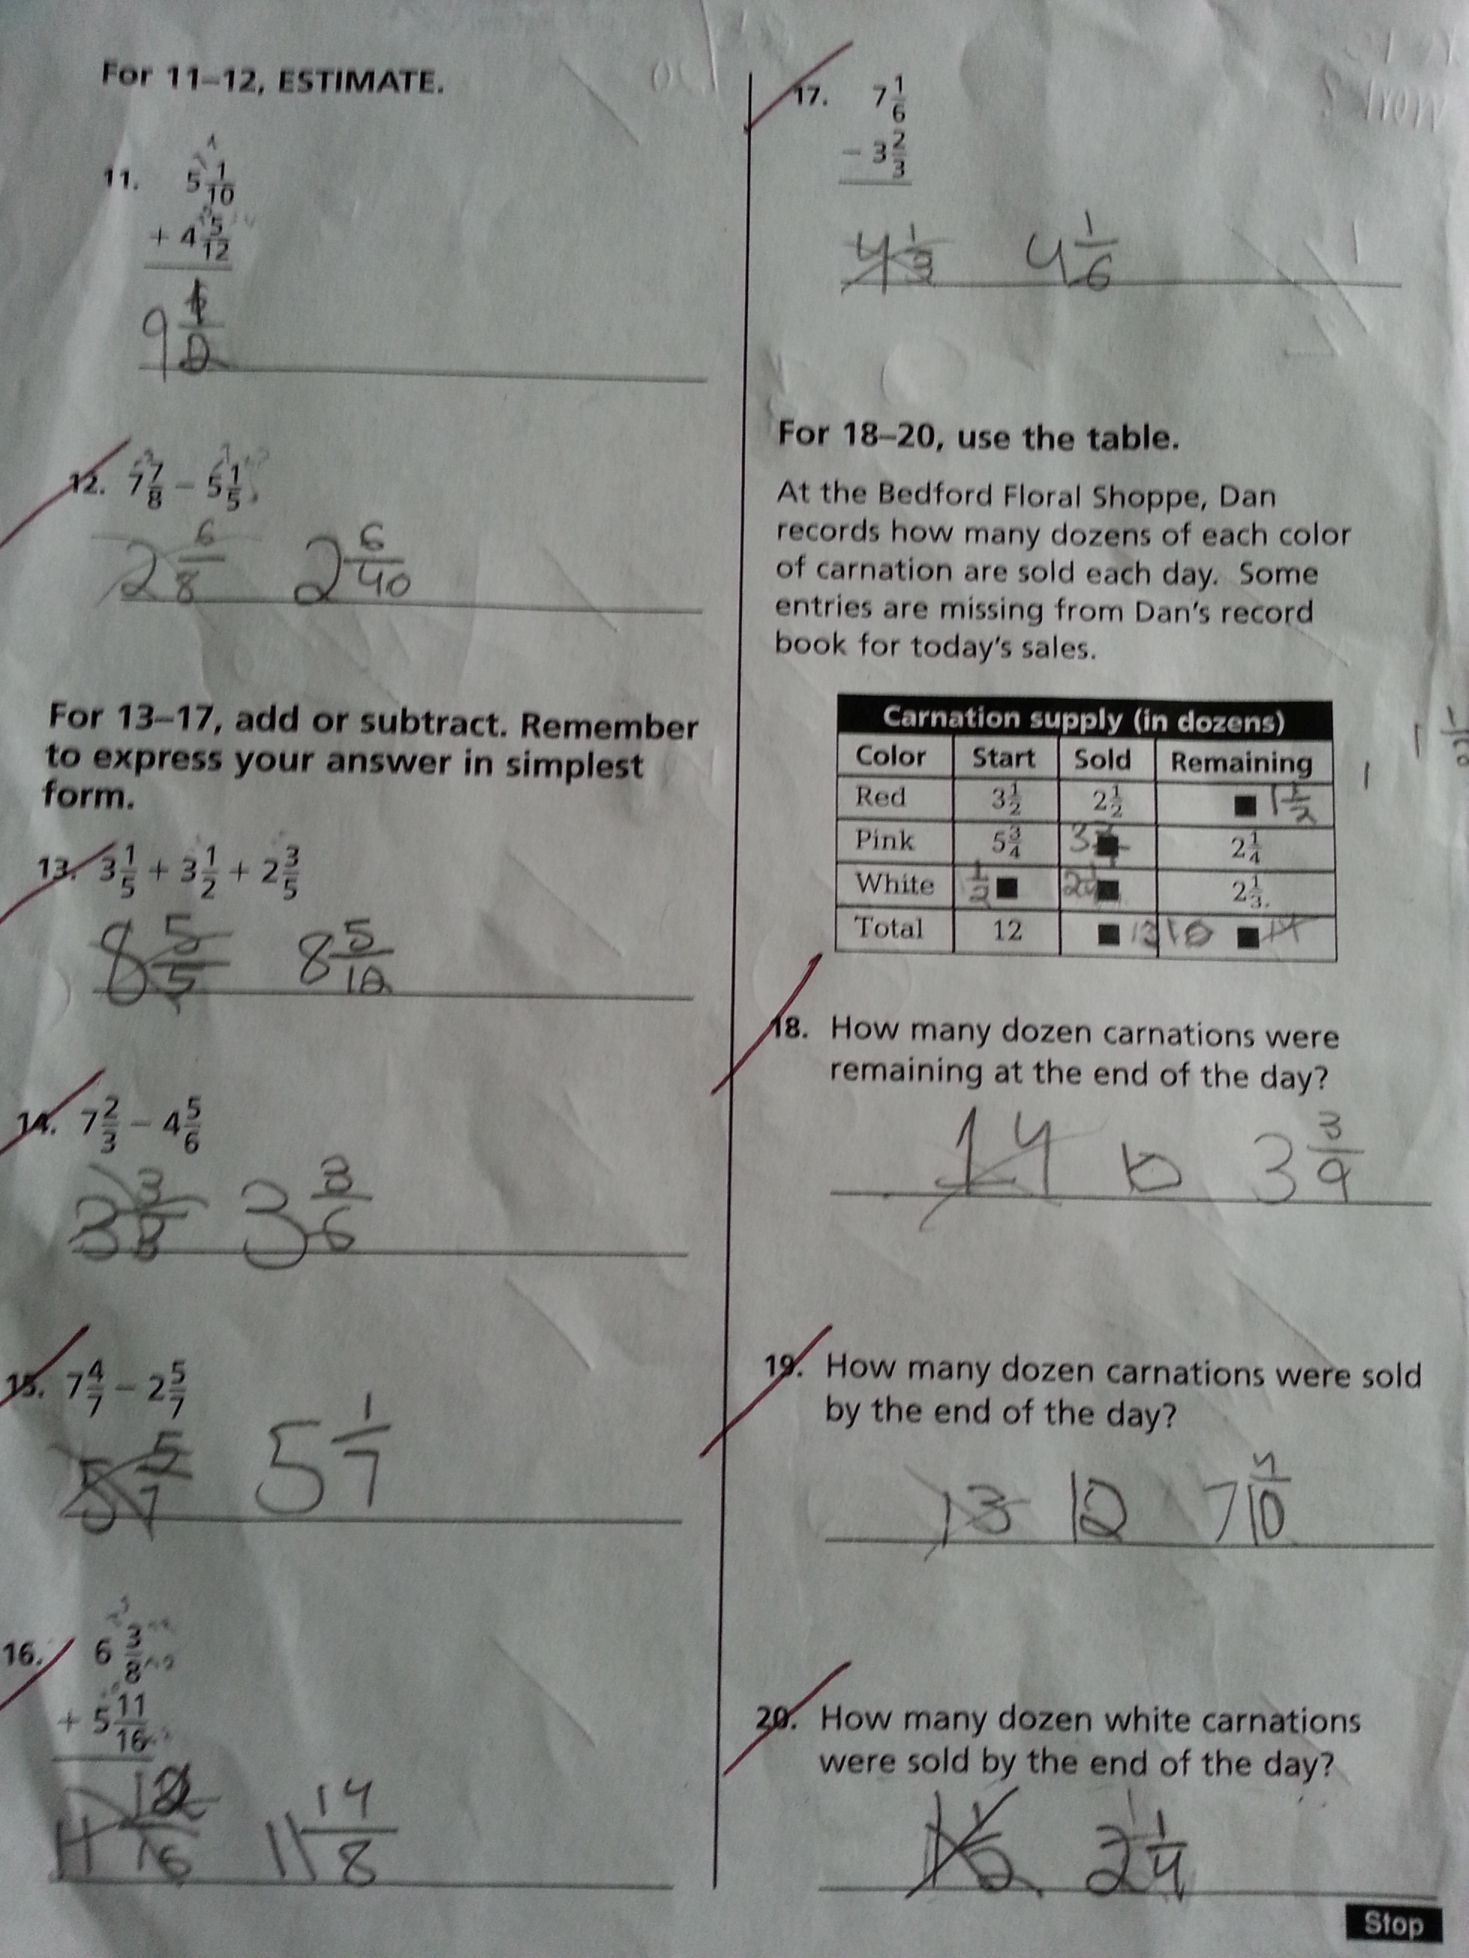 For 11–12, ESTIMATE.
11. 5 1/10
+ 4 5/12
9 1/2
12. 7 7/8 – 5 1/5
2 6/8 2 6/40
For 13–17, add or subtract. Remember
to express your answer in simplest
form.
13. 3 1/5 + 3 1/2 + 2 3/5
8 5/5 8 5/12
14. 7 2/3 – 4 5/6
3 3/6
15. 7 4/7 – 2 5/7
5 5/7 5 1/7
16. 6 3/8
+ 5 11/16
11 14/8
17. 7 1/6
– 3 2/3
4 1/3 4 1/6
For 18–20, use the table.
At the Bedford Floral Shoppe, Dan
records how many dozens of each color
of carnation are sold each day. Some
entries are missing from Dan's record
book for today's sales.
Carnation supply (in dozens)
Color Start Sold Remaining
Red 3 1/2 2 1/2 ■ 1 1/2
Pink 5 3/4 ■ 2 1/4
White 1/2 ■ ■ 2 1/3
Total 12 ■ 13 10 ■ 14
1 1/2
18. How many dozen carnations were
remaining at the end of the day?
14 3 3/9
19. How many dozen carnations were sold
by the end of the day?
13 12 7 4/10
20. How many dozen white carnations
were sold by the end of the day?
2 1/4
Stop